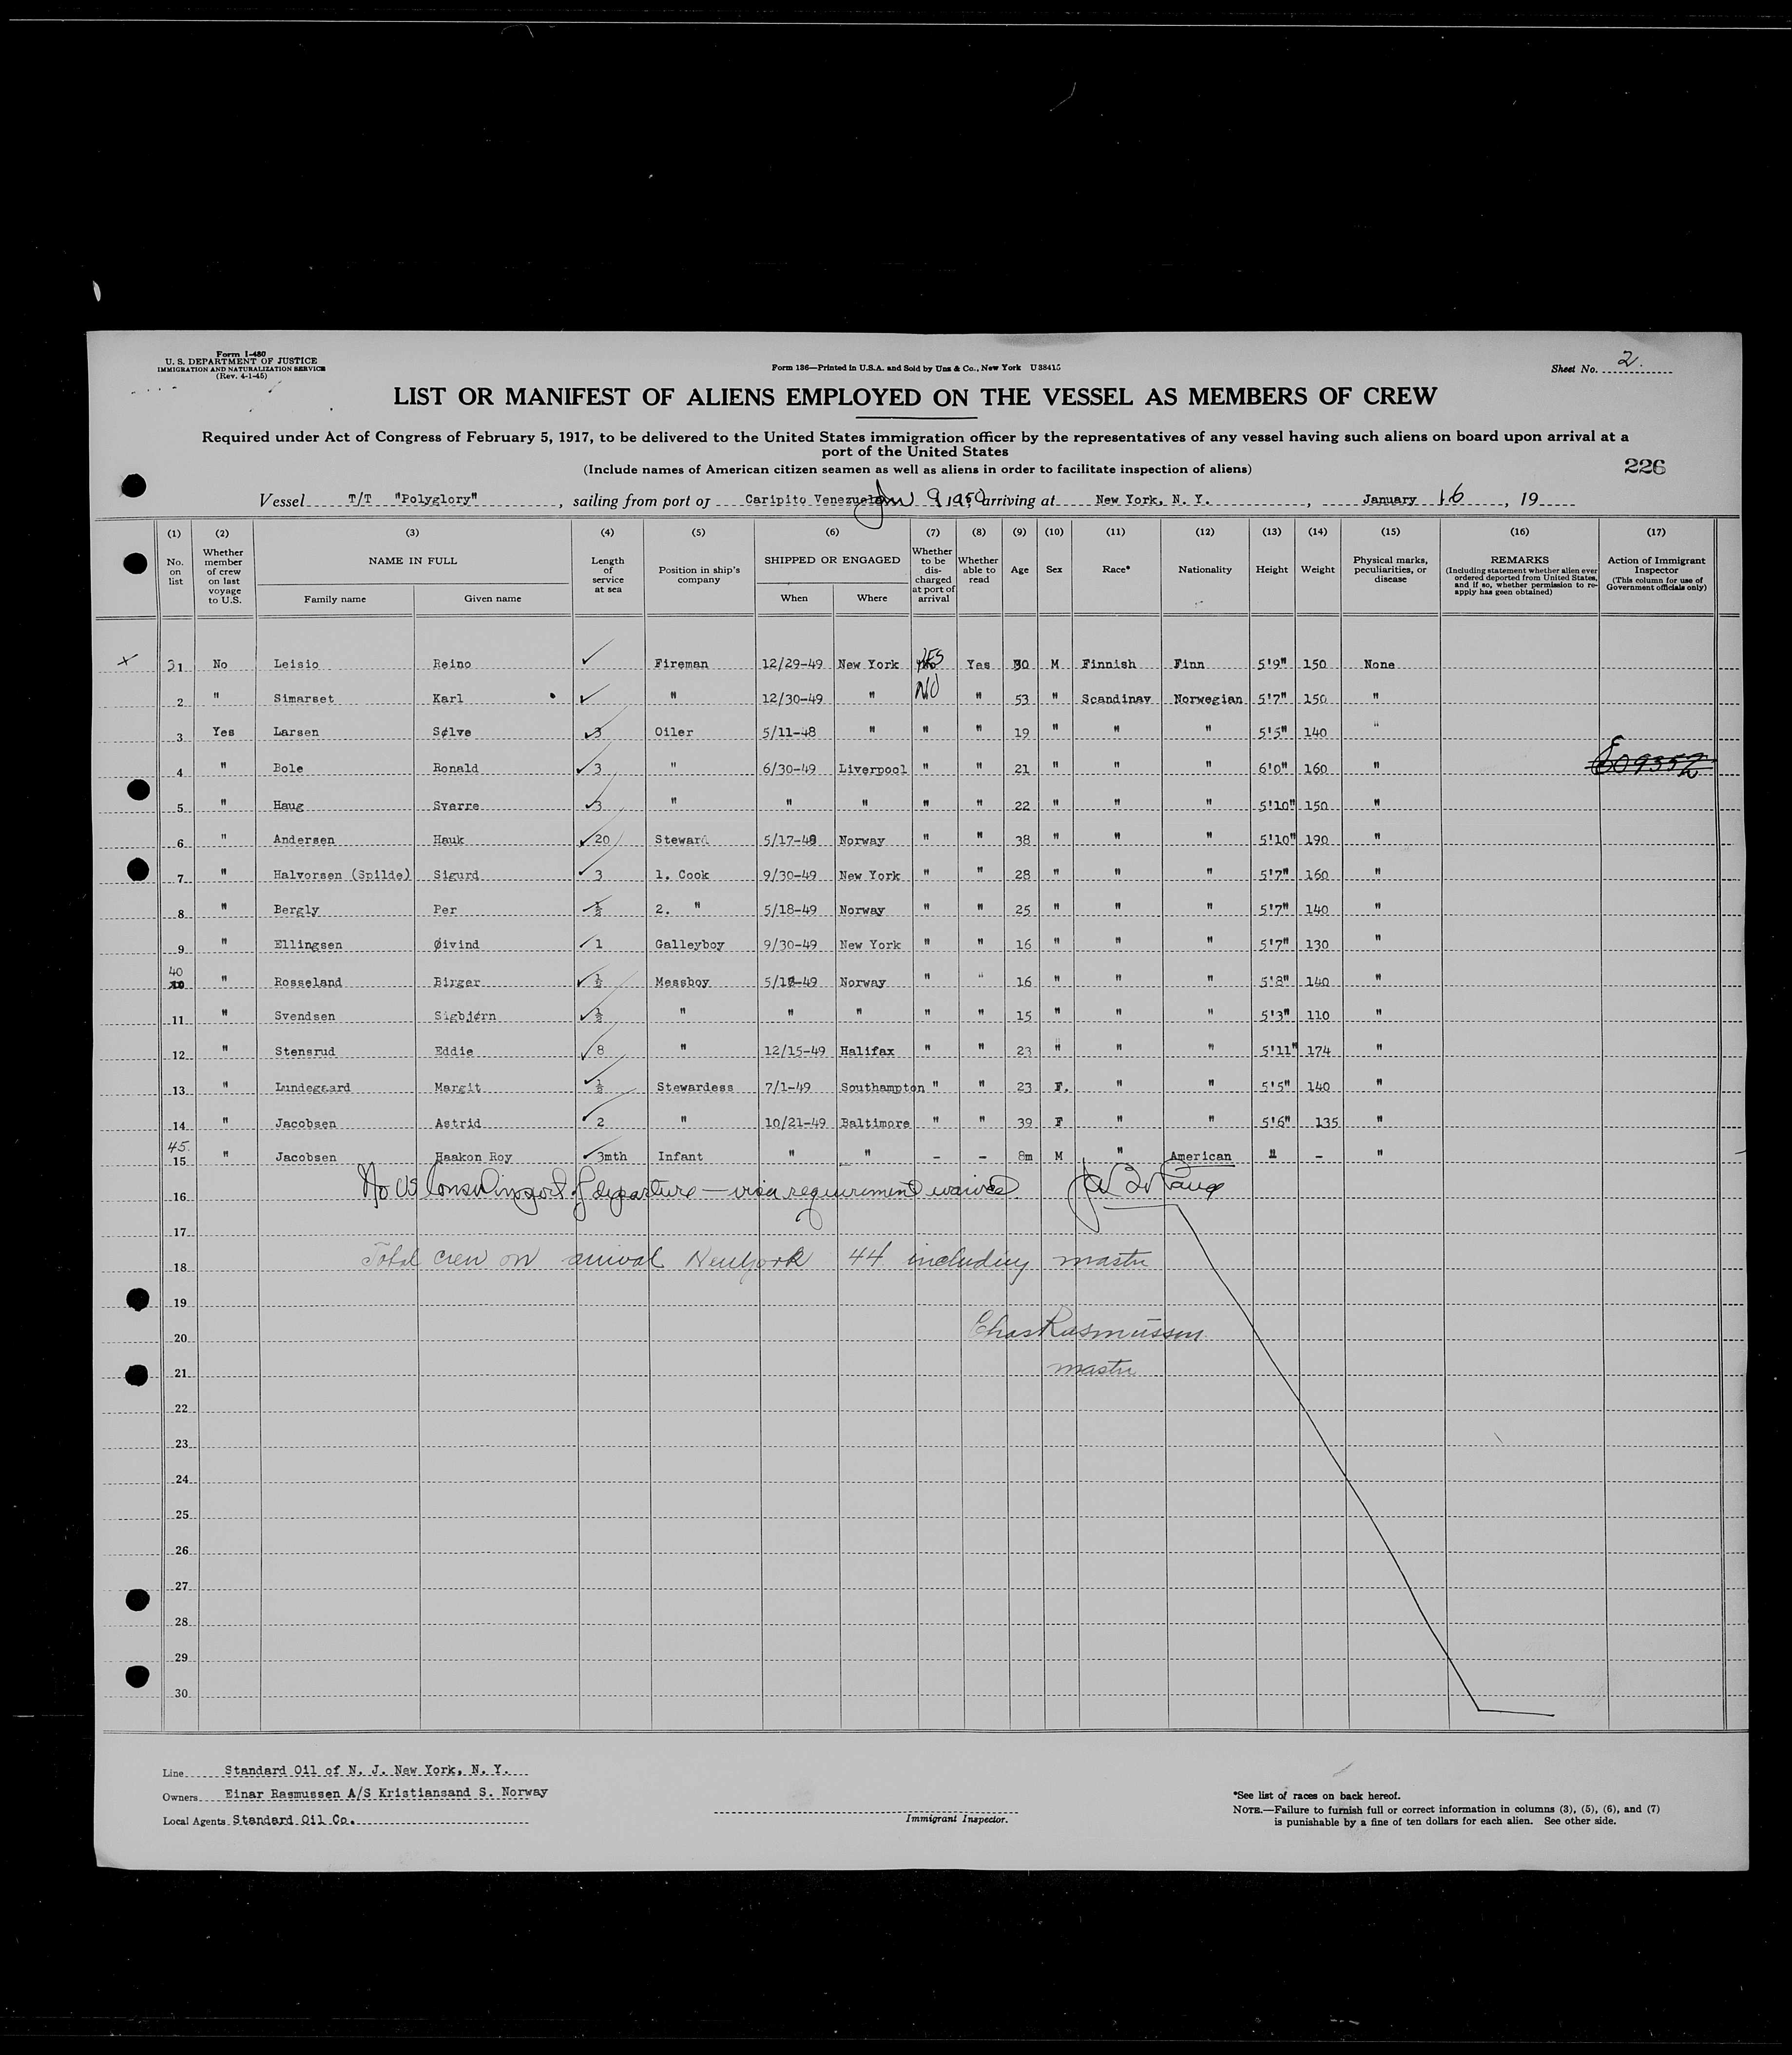 Form I-480
U. S. DEPARTMENT OF JUSTICE
IMMIGRATION AND NATURALIZATION SERVICE
(Rev. 4-1-45)
Form 136—Printed in U.S.A. and Sold by Unz & Co., New York U 38415
Sheet No. 2.
LIST OR MANIFEST OF ALIENS EMPLOYED ON THE VESSEL AS MEMBERS OF CREW
Required under Act of Congress of February 5, 1917, to be delivered to the United States immigration officer by the representatives of any vessel having such aliens on board upon arrival at a
port of the United States
(Include names of American citizen seamen as well as aliens in order to facilitate inspection of aliens)
226
Vessel T/T "Polyglory", sailing from port of Caripito Venezuela Jan 9, 1950 arriving at New York, N. Y., January 16, 19
(1) (2) (3) (4) (5) (6) (7) (8) (9) (10) (11) (12) (13) (14) (15) (16) (17)
No. on list
Whether member of crew on last voyage to U.S.
NAME IN FULL
Family name
Given name
Length of service at sea
Position in ship's company
SHIPPED OR ENGAGED
When
Where
Whether to be discharged at port of arrival
Whether able to read
Age
Sex
Race*
Nationality
Height
Weight
Physical marks, peculiarities, or disease
REMARKS
(Including statement whether alien ever ordered deported from United States, and if so, whether permission to re-apply has geen obtained)
Action of Immigrant Inspector
(This column for use of Government officials only)
x 31 No Leisio Reino ✓ Fireman 12/29-49 New York YES Yes 30 M Finnish Finn 5'9" 150 None
2 " Simarset Karl ✓ " 12/30-49 " NO " 53 " Scandinav Norwegian 5'7" 150 "
3 Yes Larsen Sølve ✓3 Oiler 5/11-48 " " " 19 " " " 5'5" 140 "
4 " Bole Ronald ✓3 " 6/30-49 Liverpool " " 21 " " " 6'0" 160 "
5 " Haug Sverre ✓3 " " " " " 22 " " " 5'10" 150 "
6 " Andersen Hauk ✓20 Steward 5/17-48 Norway " " 38 " " " 5'10" 190 "
7 " Halvorsen (Spilde) Sigurd ✓3 1. Cook 9/30-49 New York " " 28 " " " 5'7" 160 "
8 " Bergly Per ✓½ 2. " 5/18-49 Norway " " 25 " " " 5'7" 140 "
9 " Ellingsen Øivind ✓1 Galleyboy 9/30-49 New York " " 16 " " " 5'7" 130 "
40 10 " Rosseland Birger ✓½ Messboy 5/18-49 Norway " " 16 " " " 5'8" 140 "
11 " Svendsen Sigbjørn ✓½ " " " " " 15 " " " 5'3" 110 "
12 " Stensrud Eddie ✓8 " 12/15-49 Halifax " " 23 " " " 5'11" 174 "
13 " Lundegaard Margit ✓½ Stewardess 7/1-49 Southampton " " 23 F. " " 5'5" 140 "
14 " Jacobsen Astrid ✓2 " 10/21-49 Baltimore " " 39 F " " 5'6" 135 "
45. 15 " Jacobsen Haakon Roy ✓3mth Infant " " – – 8m M " American " – "
16 No US Consul in port of departure — visa requirement waived
17
18 Total crew on arrival New York 44 including master
19
20 Chas Rasmussen
21 master
22
23
24
25
26
27
28
29
30
Line Standard Oil of N. J. New York, N. Y.
Owners Einar Rasmussen A/S Kristiansand S. Norway
Local Agents Standard Oil Co.
Immigrant Inspector.
*See list of races on back hereof.
NOTE.—Failure to furnish full or correct information in columns (3), (5), (6), and (7)
is punishable by a fine of ten dollars for each alien. See other side.